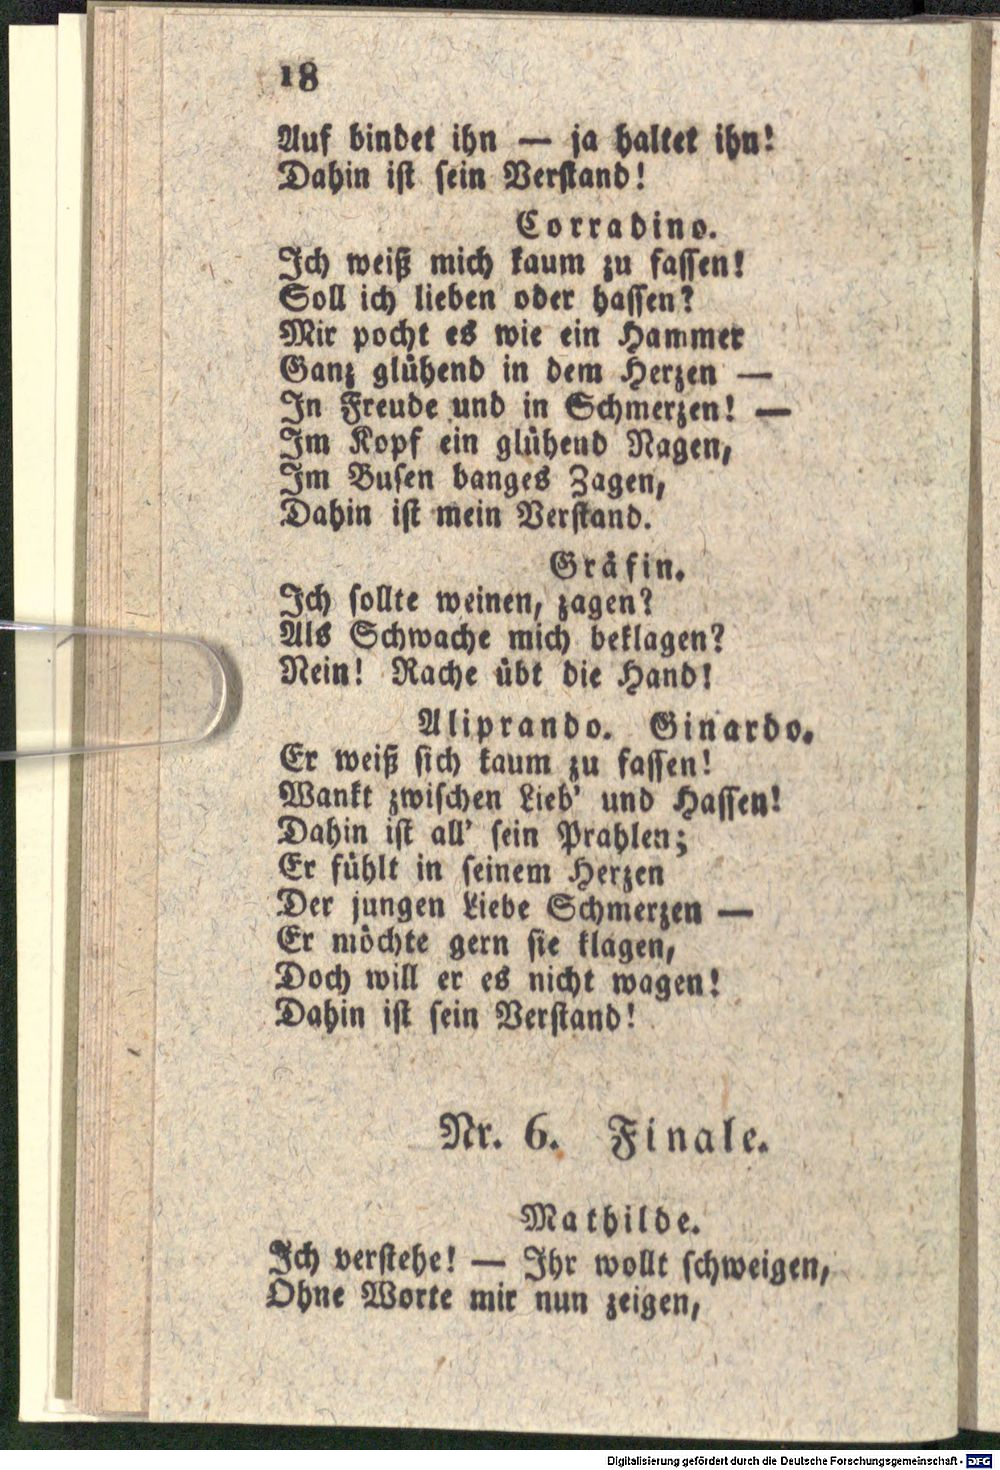 18
Auf bindet ihn — ja haltet ihn!
Dahin ist sein Verstand!
Corradino.
Ich weiß mich kaum zu fassen!
Soll ich lieben oder hassen?
Mir pocht es wie ein Hammer
Ganz glühend in dem Herzen —
In Freude und in Schmerzen! —
Im Kopf ein glühend Nagen,
Im Busen banges Zagen,
Dahin ist mein Verstand.
Gräfin.
Ich sollte weinen, zagen?
Als Schwache mich beklagen?
Nein! Rache übt die Hand!
Aliprando. Ginardo.
Er weiß sich kaum zu fassen!
Wankt zwischen Lieb' und Hassen!
Dahin ist all' sein Prahlen;
Er fühlt in seinem Herzen
Der jungen Liebe Schmerzen —
Er möchte gern sie klagen,
Doch will er es nicht wagen!
Dahin ist sein Verstand!
Nr. 6. Finale.
Mathilde.
Ich verstehe! — Ihr wollt schweigen,
Ohne Worte mir nun zeigen,
Digitalisierung gefördert durch die Deutsche Forschungsgemeinschaft - DFG